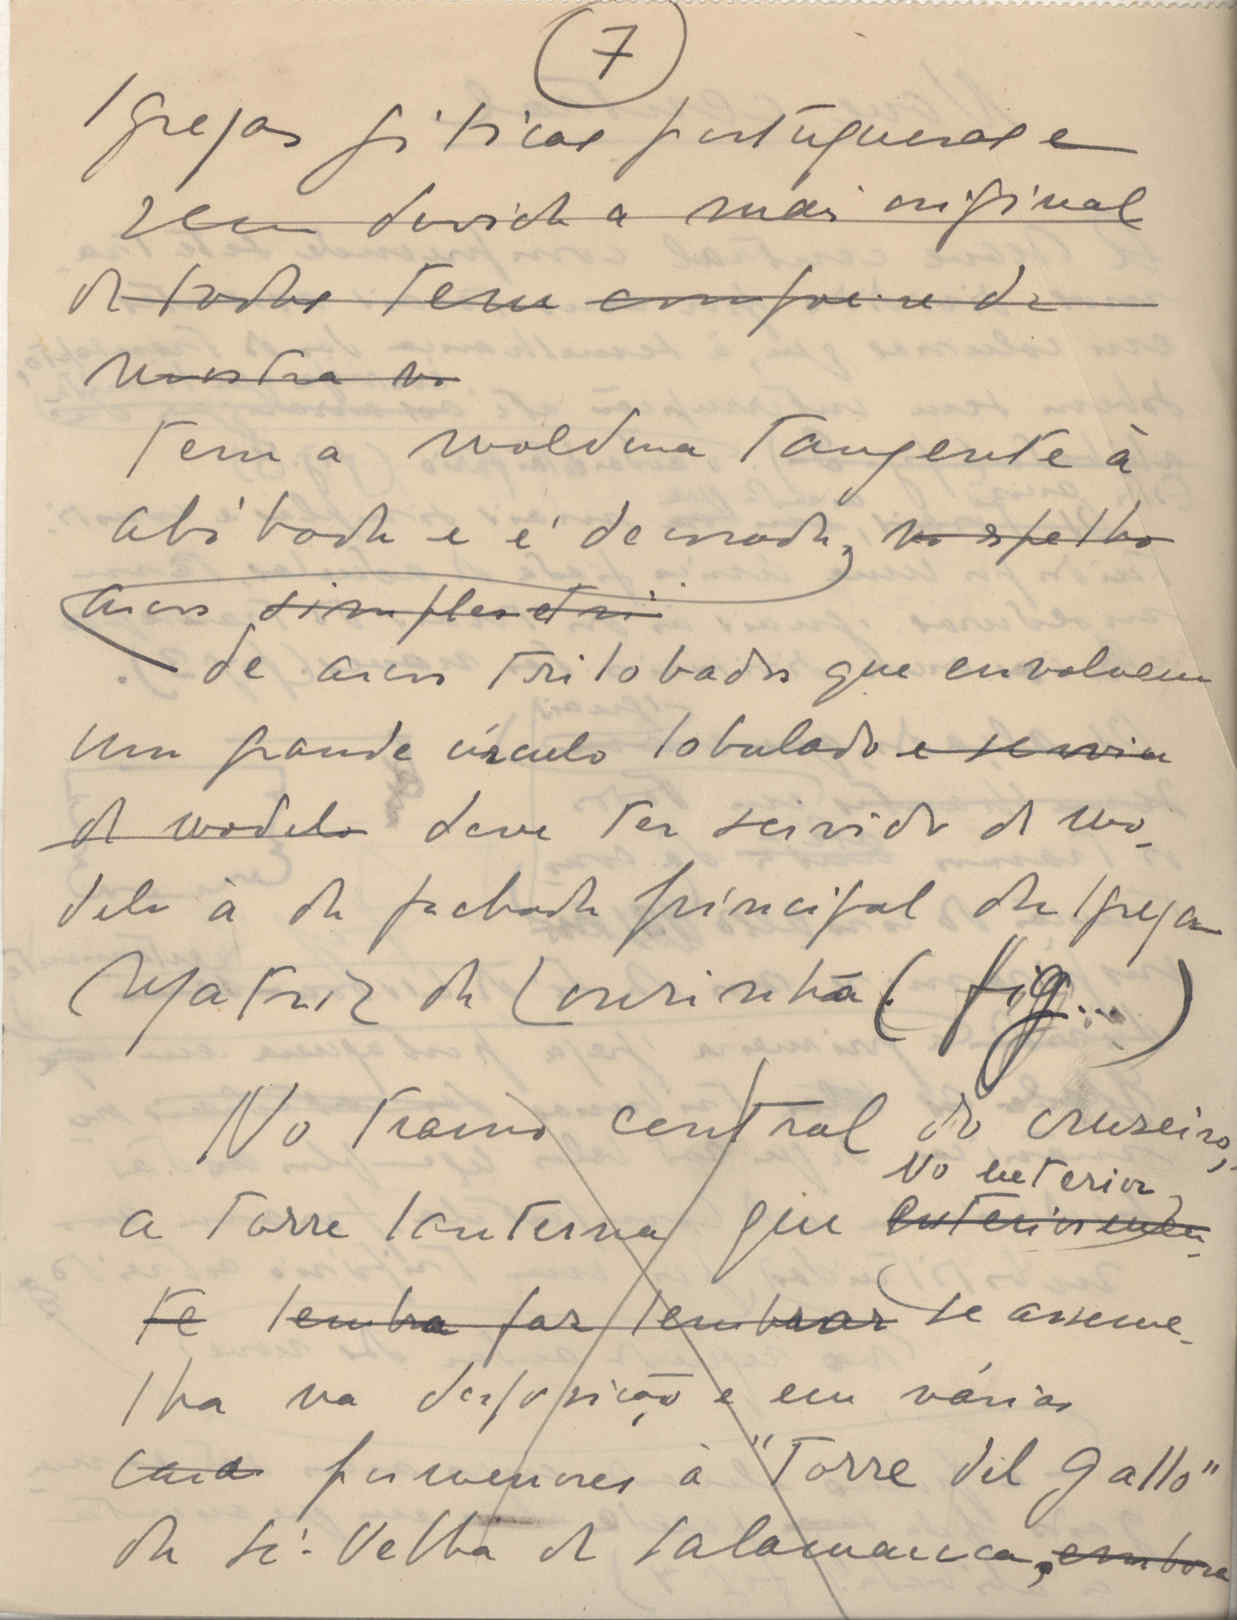 7
Igrejas góticas portuguesas e
sem duvida a mais original
de todas tem
mostra no
tem a moldura tangente à
abóbada e é decorada, no espelho
arcos simples etri
de arcos trilobados que envolvem
um grande círculo lobulado e servia
de modelo deve ter servido de mo-
delo à da fachada principal da Igreja
Matriz da Lourinhã (fig...)
No tramo central do cruzeiro,
no exterior,
a torre lanterna que exteriormen-
te lembra faz lembrar se asseme-
lha na disposição e em vários
pormenores à "Torre del Gallo"
da Sé-Velha de Salamanca, embora